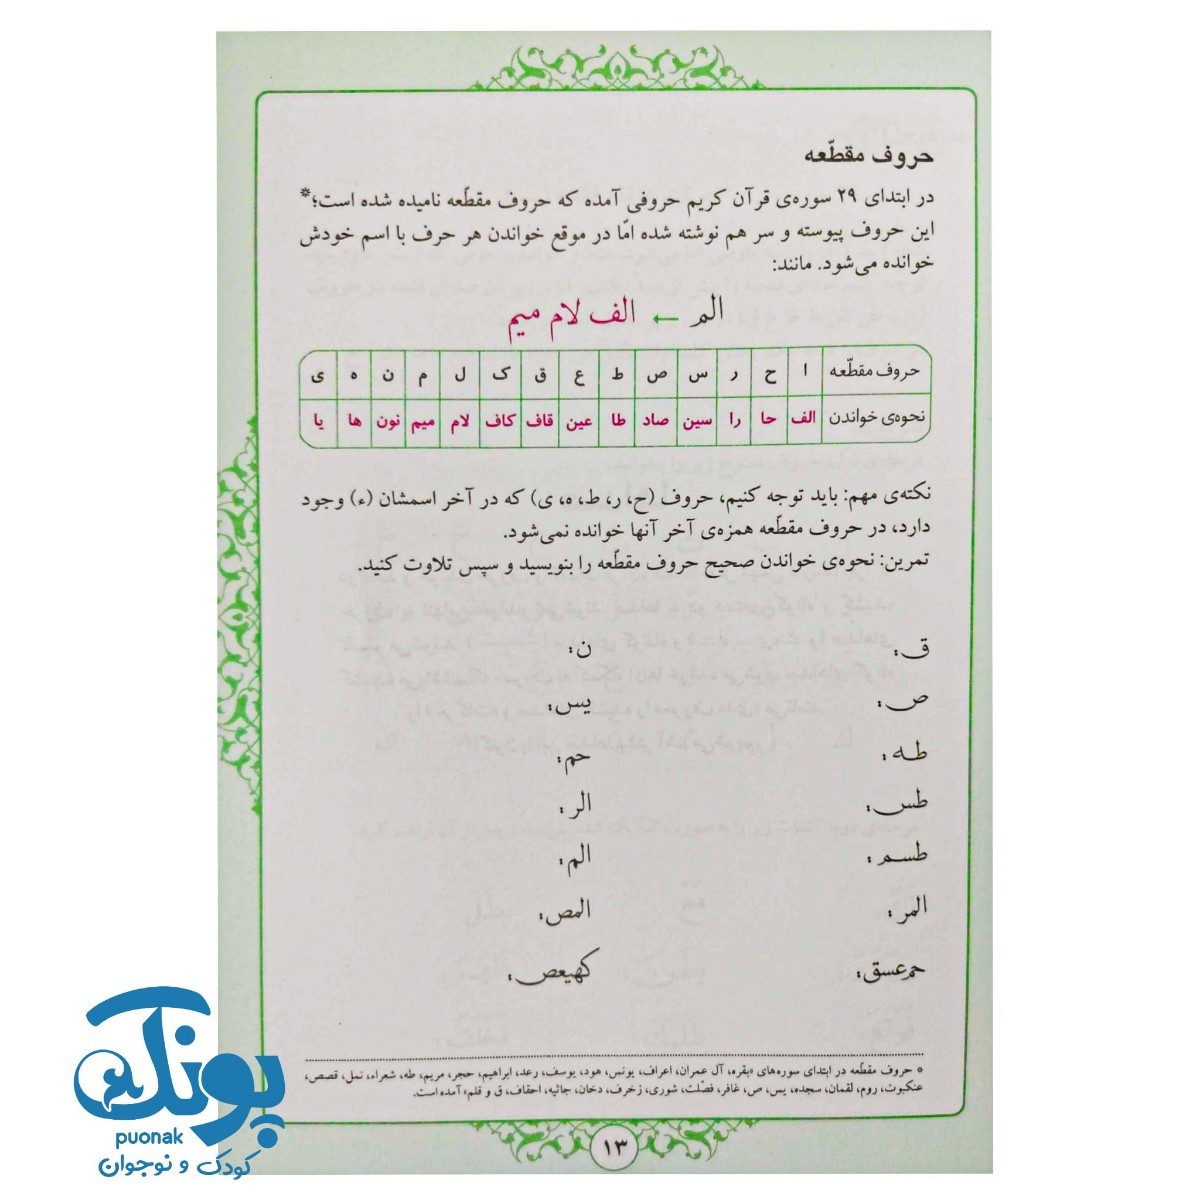 حروف مقطّعه
در ابتدای ۲۹ سوره‌ی قرآن کریم حروفی آمده که حروف مقطّعه نامیده شده است؛*
این حروف پیوسته و سر هم نوشته شده امّا در موقع خواندن هر حرف با اسم خودش
خوانده می‌شود. مانند:
الم ← الف لام میم
حروف مقطّعه ا ح ر س ص ط ع ق ک ل م ن ه ی
نحوه‌ی خواندن الف حا را سین صاد طا عین قاف کاف لام میم نون ها یا
نکته‌ی مهم: باید توجه کنیم، حروف (ح، ر، ط، ه، ی) که در آخر اسمشان (ء) وجود
دارد، در حروف مقطّعه همزه‌ی آخر آنها خوانده نمی‌شود.
تمرین: نحوه‌ی خواندن صحیح حروف مقطّعه را بنویسید و سپس تلاوت کنید.
ق: ن:
ص: یس:
طه: حم:
طس: الر:
طسم: الم:
المر: المص:
حمعسق: کهیعص:
* حروف مقطّعه در ابتدای سوره‌های «بقره، آل عمران، اعراف، یونس، هود، یوسف، رعد، ابراهیم، حجر، مریم، طه، شعراء، نمل، قصص،
عنکبوت، روم، لقمان، سجده، یس، ص، غافر، فصّلت، شوری، زخرف، دخان، جاثیه، احقاف، ق و قلم» آمده است.
۱۳
پونک
puonak
کودک و نوجوان